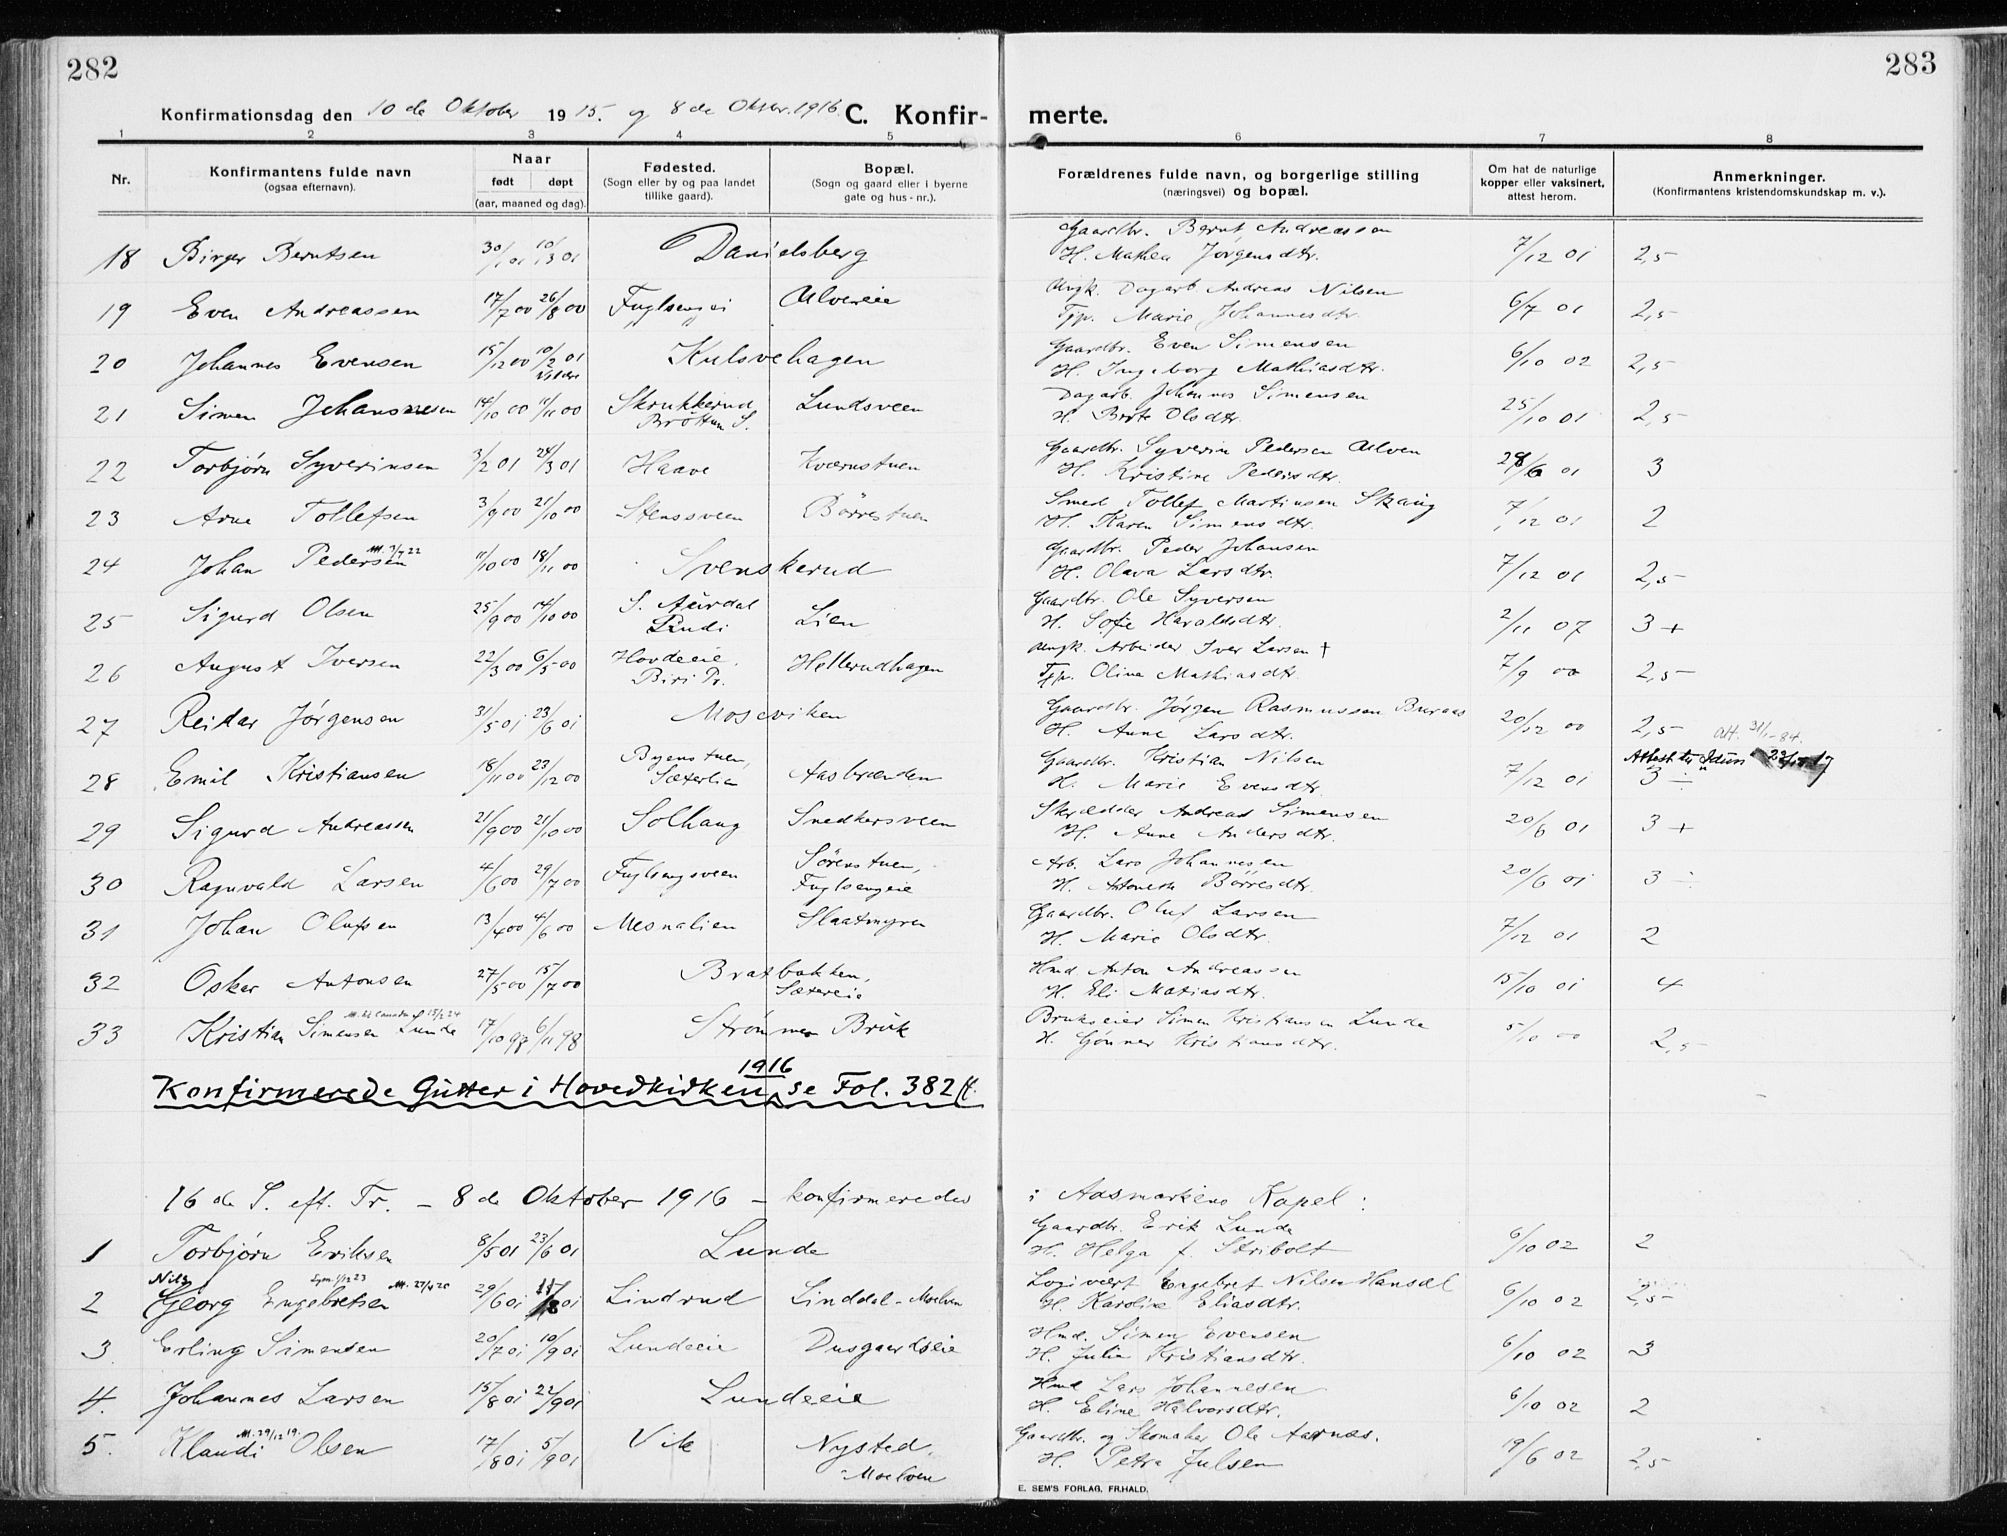 282
283
Konfirmationsdag den 10 de Oktober 1915. og 8 de Oktbr. 1916. C. Konfir-
merte.
1 2 3 4 5 6 7 8
Nr. Konfirmantens fulde navn (ogsaa efternavn). Naar født døpt (aar, maaned og dag). Fødested. (Sogn eller by og paa landet tillike gaard). Bopæl. (Sogn og gaard eller i byerne gate og hus-nr.). Forældrenes fulde navn, og borgerlige stilling (næringsvei) og bopæl. Om hat de naturlige kopper eller vaksinert, attest herom. Anmerkninger. (Konfirmantens kristendomskundskap m. v.).
18 Birger Berntsen 30/1 01 10/3 01 Danielsberg Gaardbr. Bernt Andreassen
H. Mathea Jørgensdtr. 7/12 01 2,5
19 Even Andreassen 17/7 00 26/8 00 Fuglsengei Ulvereie Ungk. Dagarb. Andreas Nilsen
Tjp. Marie Johannesdtr. 6/7 01 2,5
20 Johannes Evensen 15/12 00 10/2 01 Kulsvehagen Gaardbr. Even Simensen
H. Ingeborg Mathiasdtr. 6/10 02 2,5
21 Simen Johannesen 14/10 00 11/11 00 Skrukkerud Brøttum S. Lundsveen Dagarb. Johannes Simensen
H. Berte Olsdtr. 25/10 01 2,5
22 Torbjørn Syverinsen 3/2 01 24/3 01 Haave Kværnstuen Gaardbr. Syverin Pedersen Ulven
H. Kristine Pedersdtr. 28/6 01 3
23 Arne Tollefsen 3/9 00 21/10 00 Stenssveen Børrestuen Smed Tollef Martinsen Skaug
H. Karen Simensdtr. 7/12 01 2
24 Johan Pedersen M. 3/7 22 11/10 00 18/11 00 Svenskerud Gaardbr. Peder Johansen
H. Olava Larsdtr. 7/12 01 2,5
25 Sigurd Olsen 25/9 00 14/10 00 S. Aurdal Lundi Lien Gaardbr. Ole Syversen
H. Sofie Haraldsdtr. 2/11 07 3 +
26 August Iversen 22/3 00 6/5 00 Hovdeeie, Biri Pr. Hellerudhagen Ungk. Arbeider Iver Larsen †
Tjp. Oline Mathiasdtr. 7/9 00 2,5
27 Reidar Jørgensen 31/5 01 23/6 01 Moseviken Gaardbr. Jørgen Rasmussen Buraas
H. Anne Larsdtr. 20/12 00 2,5 att. 31/1-84.
28 Emil Kristiansen 18/11 00 23/12 00 Byenstuen, Sæterlien Aasbrænden Gaardbr. Kristian Nilsen
H. Marie Evensdtr. 7/12 01 3 ÷
29 Sigurd Andreassen 21/9 00 21/10 00 Solhaug Snedkersveen Skrædder Andreas Simensen
H. Anne Andersdtr. 20/6 01 3 +
30 Ragnvald Larsen 4/6 00 29/7 00 Fuglsengsveen Sørenstuen, Fuglsengeie Arb. Lars Johannesen
H. Antonette Børresdtr. 20/6 01 3 ÷
31 Johan Olufsen 13/4 00 4/6 00 Mesnalien Slaatmyren Gaardbr. Oluf Larsen
H. Marie Olsdtr. 7/12 01 2
32 Oskar Antonsen 27/5 00 15/7 00 Bratbakken, Sætereie Hmd. Anton Andreassen
H. Eli Matiasdtr. 15/10 01 4
33 Kristian Simensen Lunde 17/10 98 6/11 98 Strømmen Bruk Brukseier Simen Kristiansen Lunde
H. Gønner Kristiansdtr. 5/10 00 2,5
Konfirmerede Gutter i Hovedkirken 1916, se Fol. 382 ff.
16 de S. eft. Tr. – 8 de Oktober 1916 – konfirmeredes i Aasmarkens Kapel:
1 Torbjørn Eriksen 8/5 01 23/6 01 Lunde Gaardbr. Erik Lunde
H. Helga f. Stribolt 6/10 02 2
2 Nils Georg Engebretsen M. 27/4 28 29/6 01 Lindrud Linddal - Moelven Logivært Engebret Nilsen Hansæl
H. Karoline Eliasdtr. 6/10 02 2,5
3 Erling Simensen 20/7 01 10/9 01 Lundeeie Dusgaardseie Hmd. Simen Evensen
H. Julie Kristiansdtr. 6/10 02 3
4. Johannes Larsen 15/8 01 22/9 01 Lundeeie Hmd. Lars Johannesen
H. Eline Halvorsdtr. 6/10 02 2
5. Klaudi Olsen M. 29/12 19. 17/8 01 5/9 01 Vik Nysted, Moelven Gaardbr. og Skomaker Ole Aarnæs.
H. Petra Julsen 19/6 02 2,5
E. SEM'S FORLAG, FR.HALD.